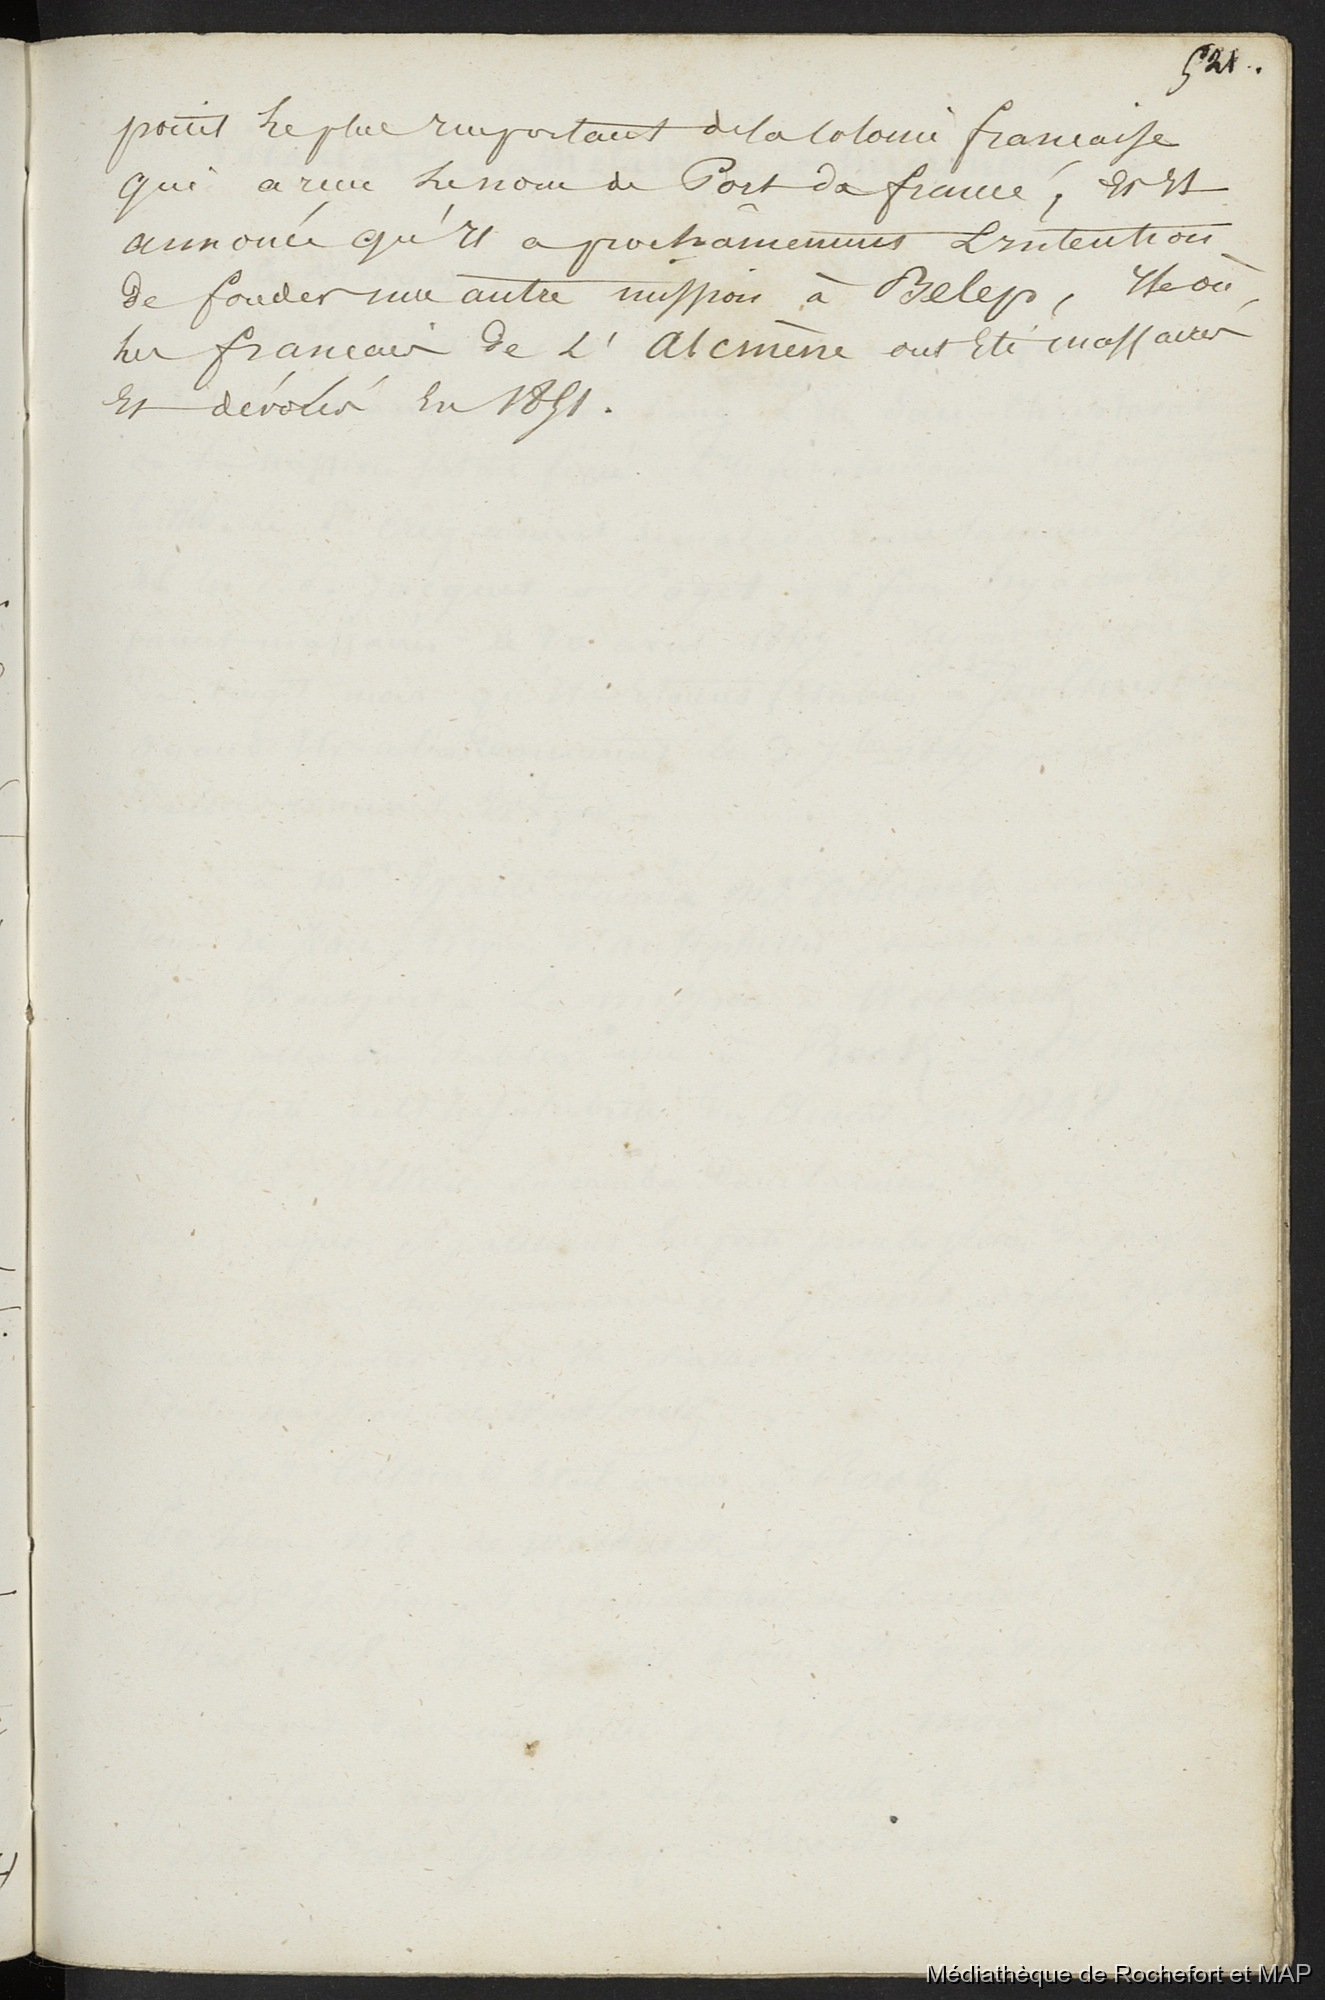 521.
point le plus important de la Colonie francaise
qui a recu le nom de Port de france, et Il
annoncé qu'Il a prochainement L'intention
de fonder une autre mission à Belep, Ile où,
les francais de L'Alcmène ont Eté massacrés
Et dévorés En 1851.
Médiathèque de Rochefort et MAP